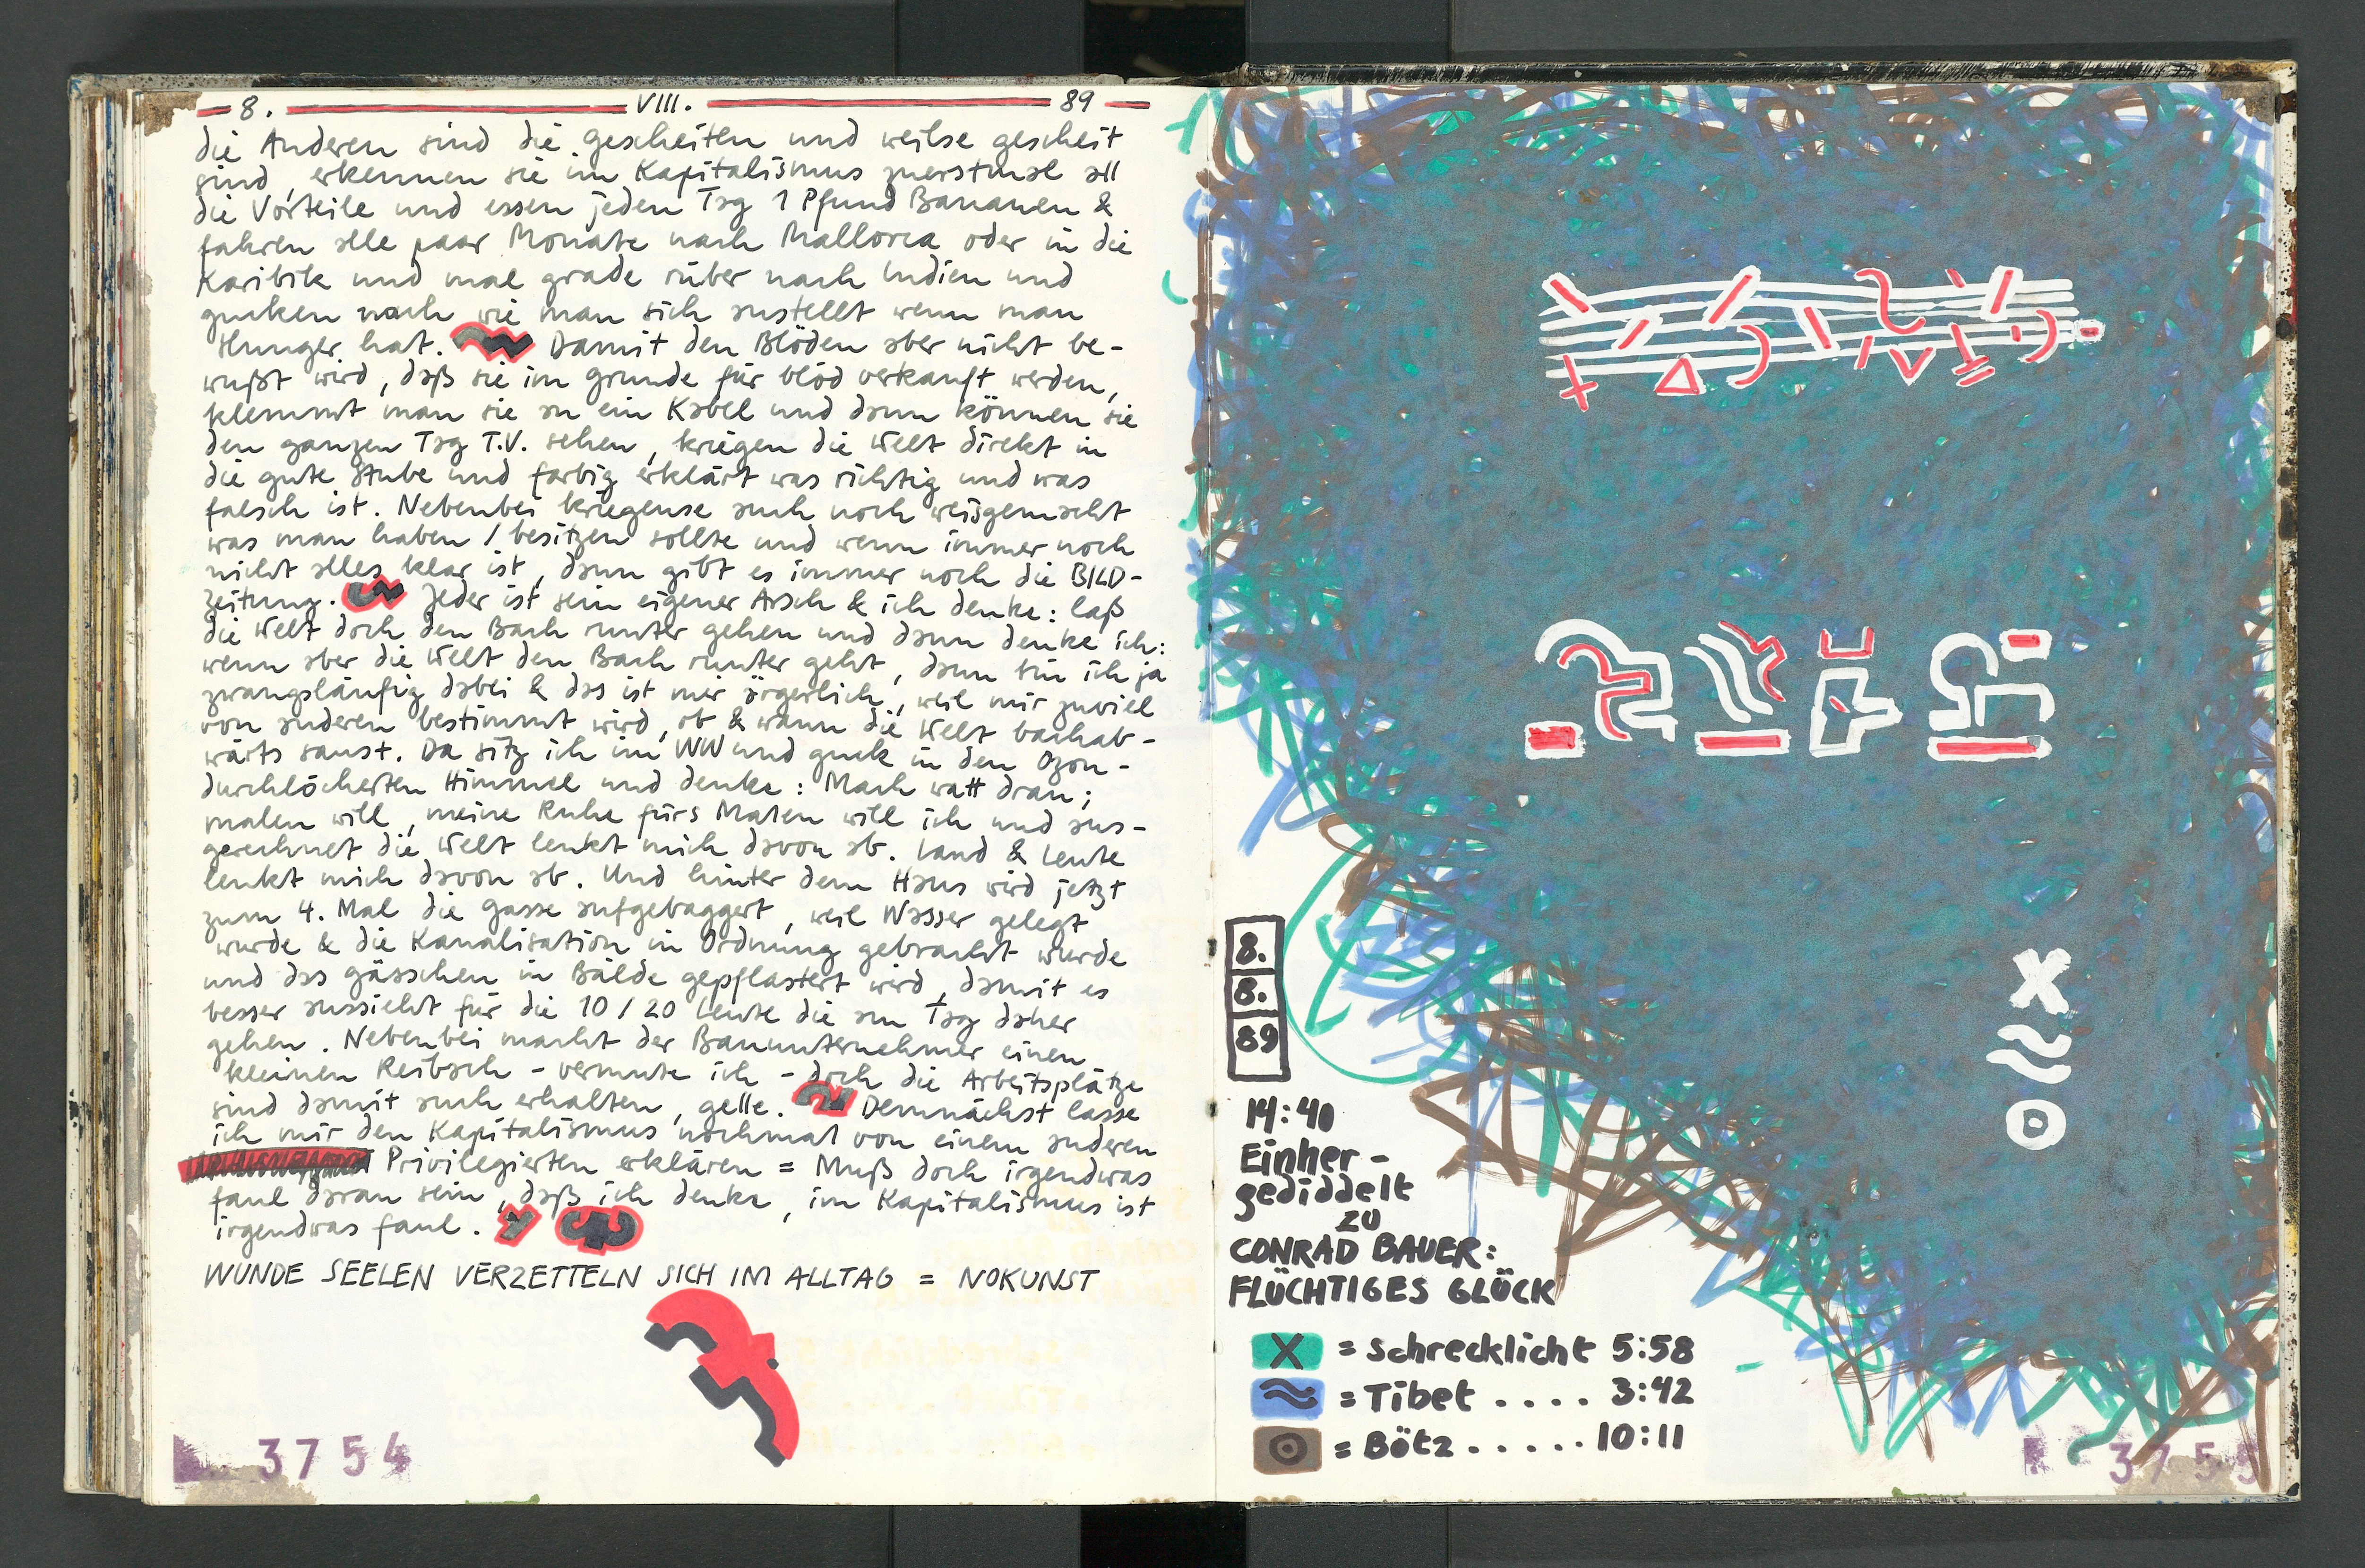 8. VIII. 89
die Anderen sind die gescheiten und weilse gescheit
sind, erkennen sie im Kapitalismus zuerstmal all
die Vorteile und essen jeden Tag 1 Pfund Bananen &
fahren alle paar Monate nach Mallorca oder in die
Karibik und mal grade rüber nach Indien und
gucken nach wie man sich anstellt wenn man
Hunger hat. Damit den Blöden aber nicht be-
wußt wird, daß sie im Grunde für blöd verkauft werden,
klemmt man sie an ein Kabel und dann können sie
den ganzen Tag T.V. sehen, kriegen die Welt direkt in
die gute Stube und farbig erklärt was richtig und was
falsch ist. Nebenbei kriegense auch noch weisgemacht
was man haben / besitzen sollte und wenn immer noch
nicht alles klar ist, dann gibt es immer noch die BILD-
Zeitung. Jeder ist sein eigener Arsch & ich denke: laß
die Welt doch den Bach runter gehen und dann denke ich:
wenn aber die Welt den Bach runter geht, dann bin ich ja
zwangsläufig dabei & das ist mir ärgerlich, weil mir zuviel
von anderen bestimmt wird, ob & wann die Welt bachab-
wärts saust. Da sitz ich im WW und guck in den Ozon-
durchlöcherten Himmel und denke: Mach watt dran;
malen will, meine Ruhe fürs Malen will ich und aus-
gerechnet die Welt lenkt mich davon ab. Land & Leute
lenkt mich davon ab. Und hinter dem Haus wird jetzt
zum 4. Mal die Gasse aufgebaggert, weil Wasser gelegt
wurde & die Kanalisation in Ordnung gebracht wurde
und das Gässchen in Bälde gepflastert wird, damit es
besser aussieht für die 10 / 20 Leute die am Tag daher
gehen. Nebenbei macht der Bauunternehmer einen
kleinen Reibach - vermute ich - doch die Arbeitsplätze
sind damit auch erhalten, gelle. Demnächst lasse
ich mir den Kapitalismus nochmal von einem anderen
Privilegierten erklären = Muß doch irgendwas
faul daran sein, daß ich denke, im Kapitalismus ist
irgendwas faul.
WUNDE SEELEN VERZETTELN SICH IM ALLTAG = NOKUNST
3754
8.
8.
89
14:40
Einher-
gediddelt
zu
CONRAD BAUER:
FLÜCHTIGES GLÜCK
X = Schrecklicht 5:58
≈ = Tibet .... 3:42
= Bötz ..... 10:11
3755